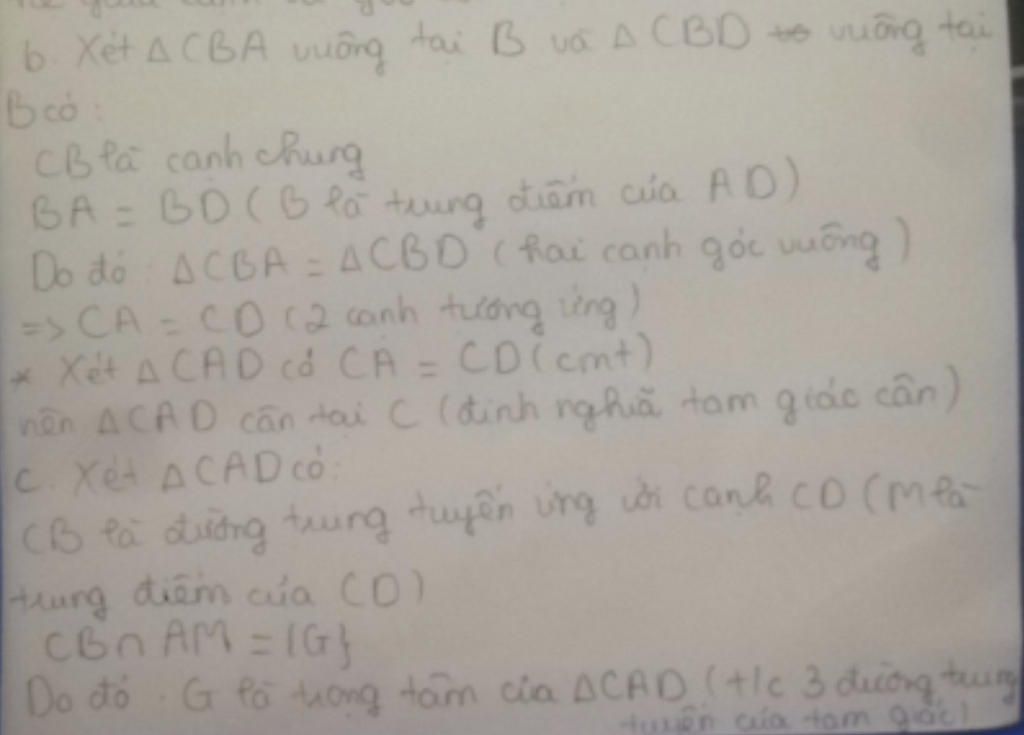 góc
b. Xét △CBA vuông tại B và △CBD vuông tại
B có:
CB là cạnh chung
BA = BD (B là trung điểm của AD)
Do đó: △CBA = △CBD (hai cạnh góc vuông)
=> CA = CD (2 cạnh tương ứng)
* Xét △CAD có CA = CD (cmt)
nên △CAD cân tại C (định nghĩa tam giác cân)
c. Xét △CAD có:
CB là đường trung tuyến ứng với cạnh CD (M là
trung điểm của CD)
CB ∩ AM = {G}
Do đó: G là trọng tâm của △CAD (t/c 3 đường trung
tuyến của tam giác)